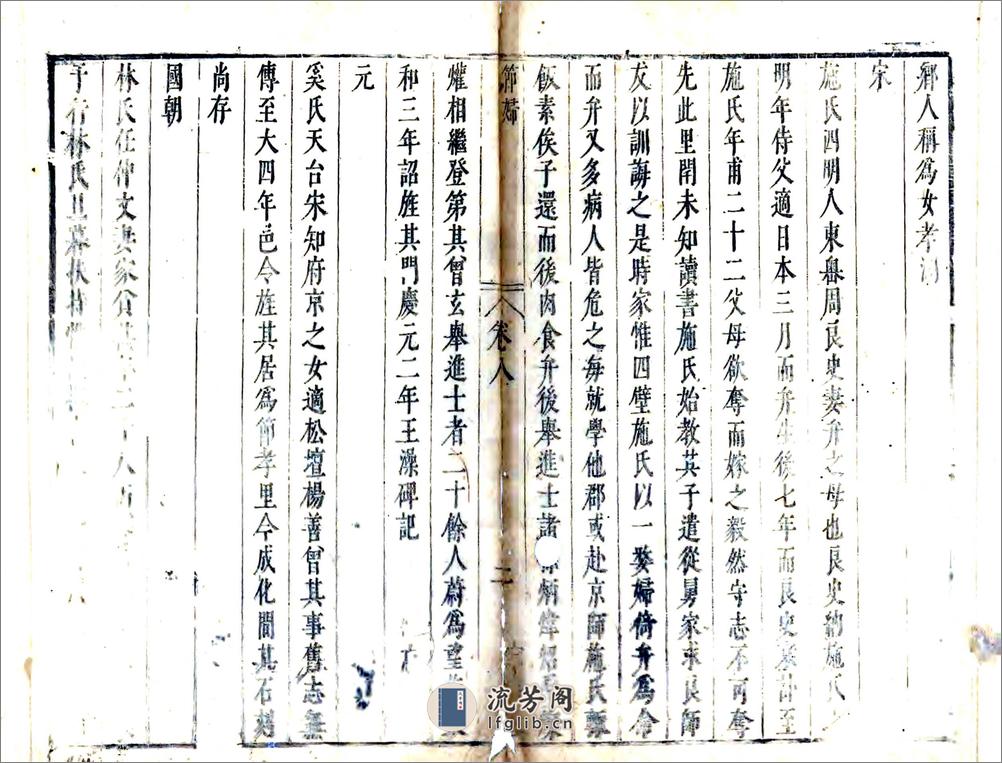 鄉人稱爲女孝
宋
施氏四明人東縣周良史妻弁之母也良史納施氏
明年侍父適日本三月而弁生後七年而良史至
施氏年甫二十二父母欲奪而嫁之毅然守志不可奪
先此里閈未知讀書施氏始教其子遣從舅家求良師
友以訓誨之是時家惟四壁施氏以一婺婦倚弁爲命
而弁又多病人皆危之每就學他郡或赴京師施氏輒
飯素俟子還而後肉食弁後舉進士諸炳煒
節婦
卷八
二
燿相繼登第其曾玄舉進士者二十餘人蔚爲望
和三年詔旌其門慶元二年王澡碑記
元
奚氏天台宋知府京之女適松壇楊善曾其事舊志無
傳至大四年邑令旌其居爲節孝里今成化間其石刻
尚存
國朝
林氏任仲文妻家貧二十八
子行林氏旦暮扶持
流芳阁
lfglib.cn